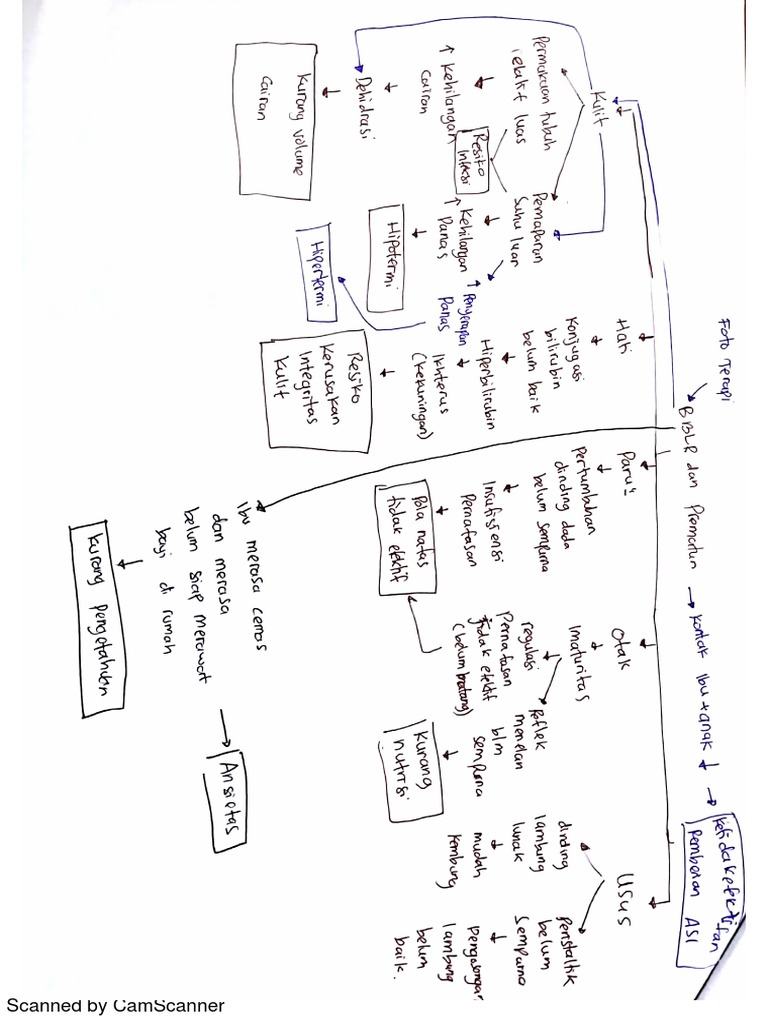 Foto Terapi
BBLR dan Prematur → kontak ibu + anak ↓ →
Ketidakefektifan
Pemberian ASI
Kulit
Permukaan tubuh
relatif luas
↑ Kehilangan
cairan
Dehidrasi
Kurang volume
cairan
Resiko
Infeksi
Pemaparan
suhu luar
↑ Kehilangan
panas
Hipotermi
↑ Penyerapan
panas
Hipertermi
Hati
Konjugasi
bilirubin
belum baik
Hiperbilirubin
Ikhterus
(kekuningan)
Resiko
Kerusakan
Integritas
Kulit
Paru²
Pertumbahan
dinding dada
belum sempurna
Insufisiensi
Pernafasan
Pola nafas
tidak efektif
Otak
Imaturitas
regulasi
Pernafasan
tidak efektif
Reflek
menelan
blm
sempurna
Kurang
nutrisi
Usus
dinding
lambung
lunak
mudah
kembung
Peristaltik
belum
sempurna
pengosongan
lambung
belum
baik.
Ibu merasa cemas
dan merasa
belum siap merawat
bayi di rumah
Kurang Pengetahuan
Ansietas
Scanned by CamScanner